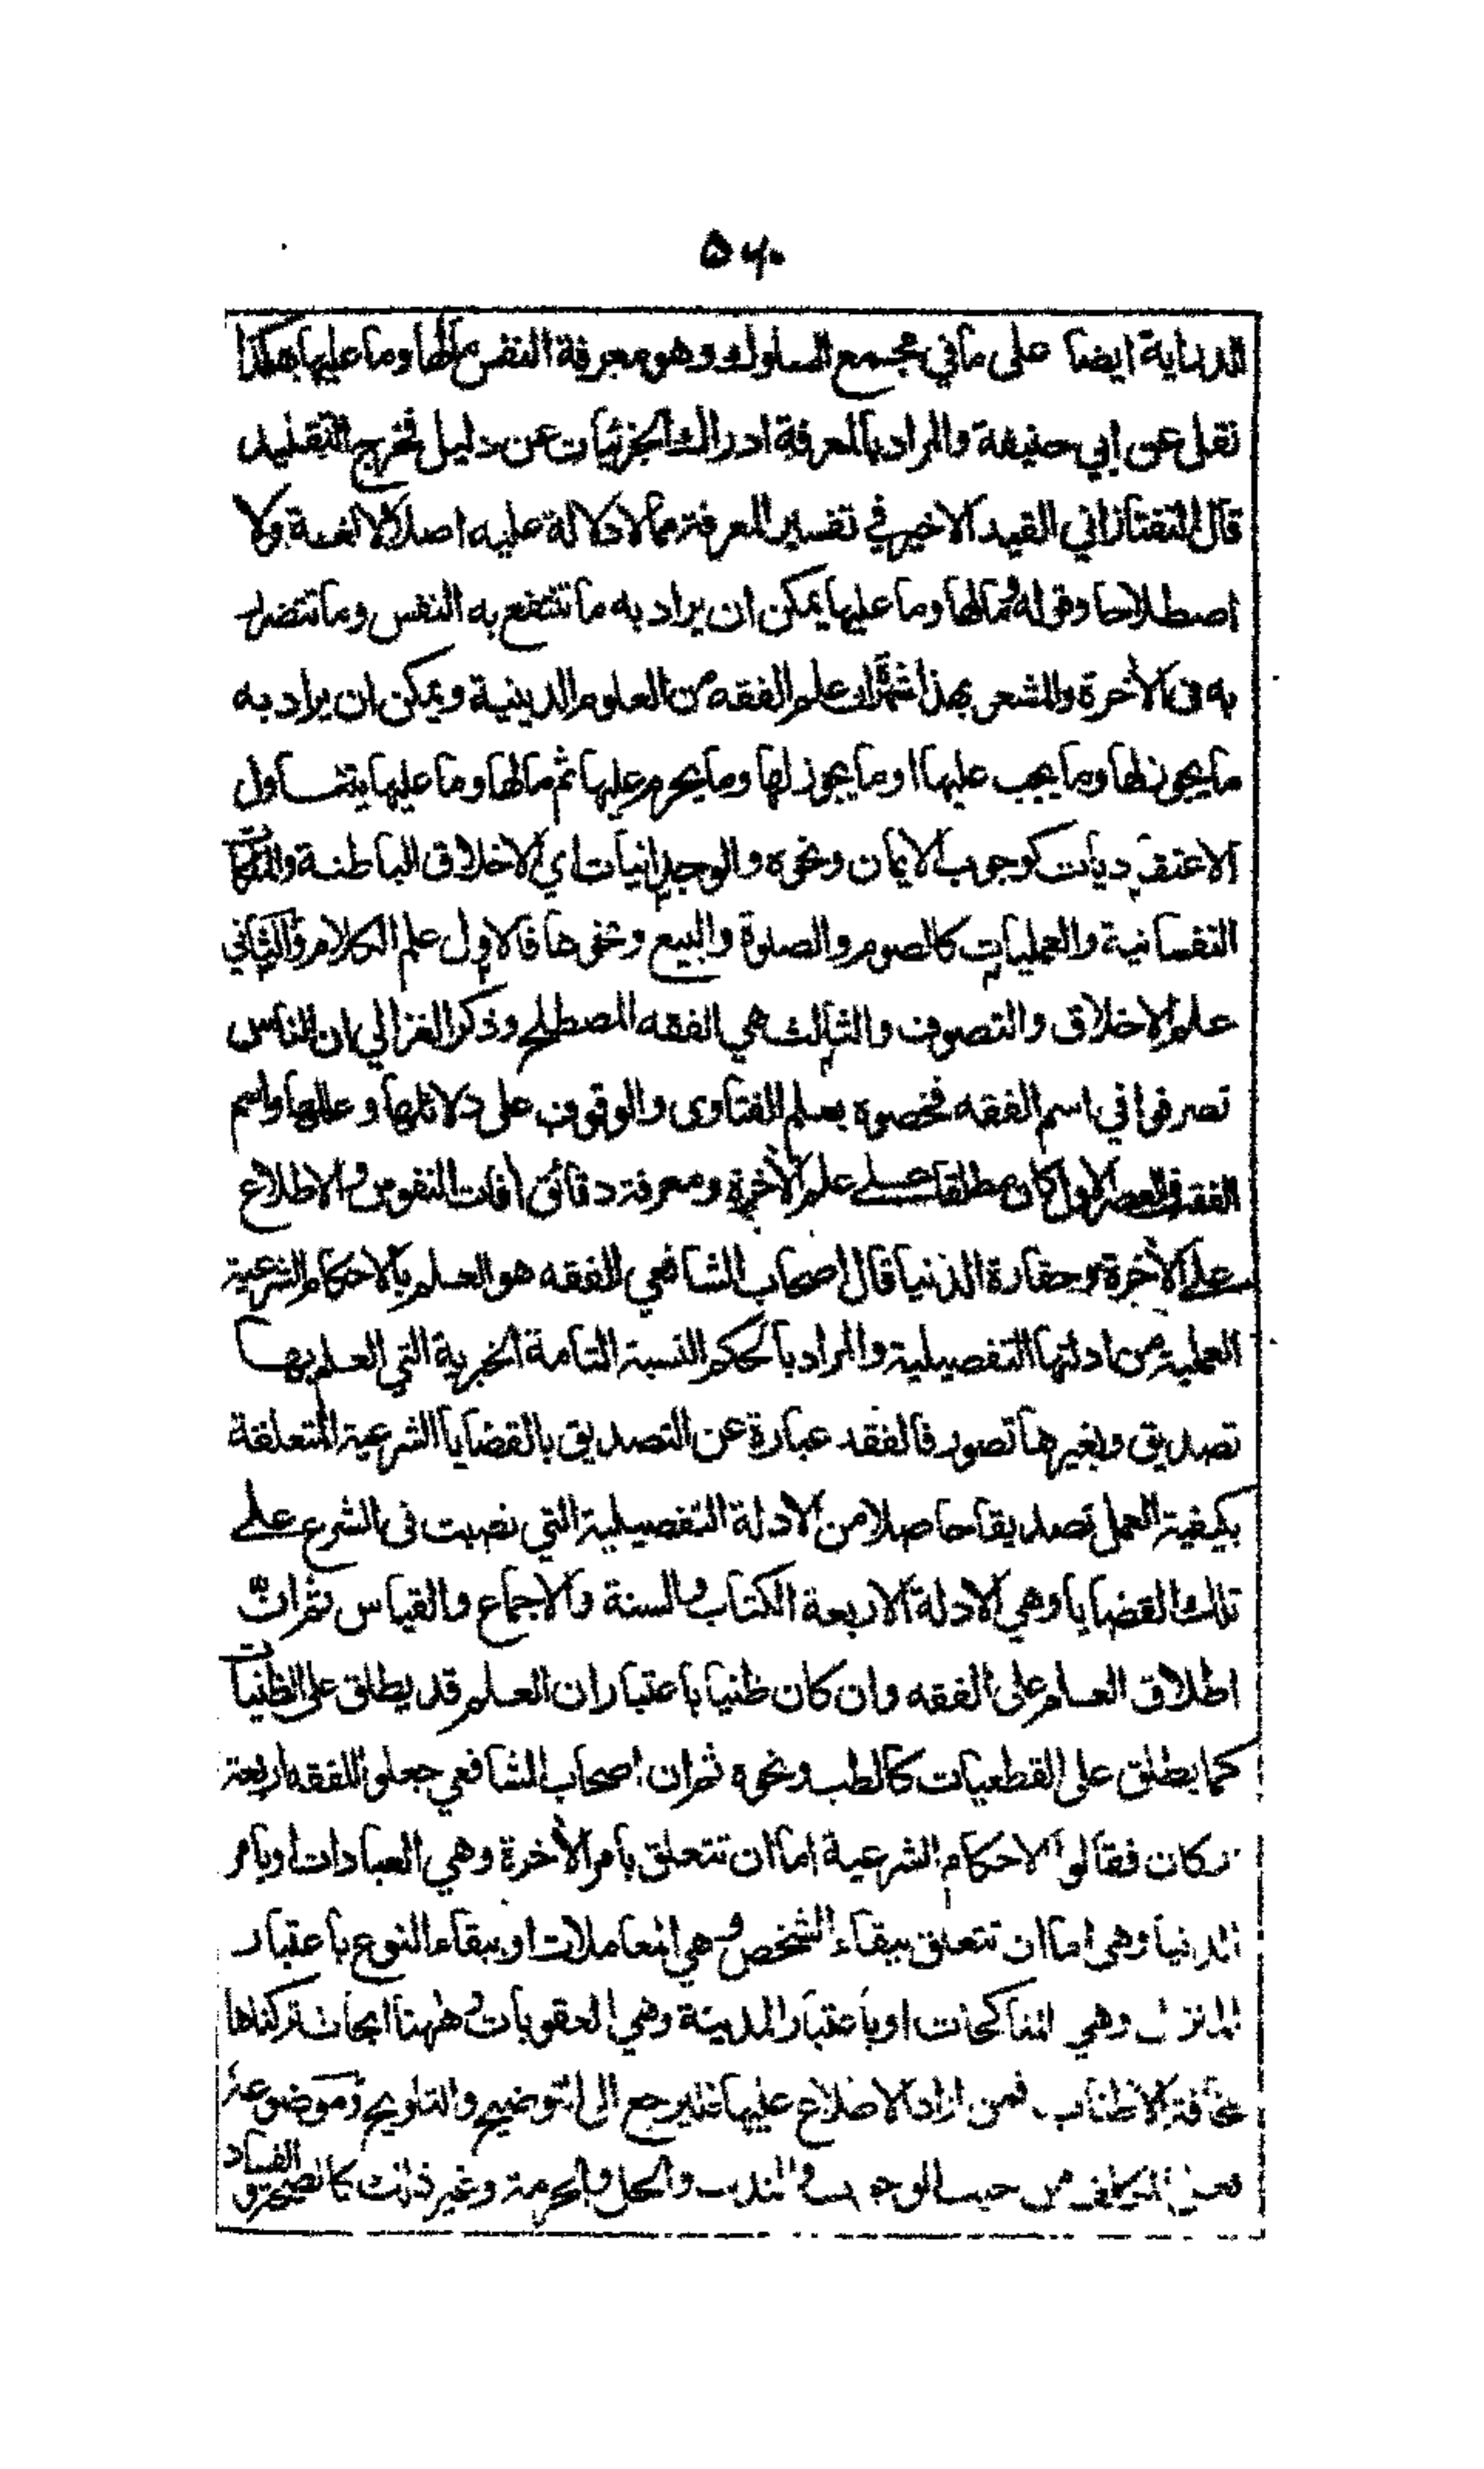 ٥٦٠
الدراية ايضا على ما في مجمع السلوك وهو معرفة النفس مالها وما عليها هكذا
نقل عن ابي حنيفة والمراد بالمعرفة ادراك الجزئيات عن دليل فخرج التقليد
قال التفتازاني القيد الاخير في تفسير المعرفة مما لا دلالة عليه اصلا لا لغة ولا
اصطلاحا وقوله مالها وما عليها يمكن ان يراد به ما تنتفع به النفس وما تتضرر
به فى الأخرة والمشعر بهذا شهرة ان علم الفقه من العلوم الدينية ويمكن ان يراد به
ما يجوز لها وما يجب عليها او ما يجوز لها وما يحرم عليها ثم مالها وما عليها يتناول
الاعتقاديات كوجوب الايمان ونحوه والوجدانيات اي الاخلاق الباطنة والملكات
النفسانية والعمليات كالصوم والصلوة والبيع ونحوها فالاول علم الكلام والثاني
علم الاخلاق والتصوف والثالث هي الفقه المصطلح وذكر الغزالي ان الناس
تصرفوا في اسم الفقه فخصوه بعلم الفتاوى والوقوف على دلائلها وعللها واسم
الفقه في العصر الاول كان مطلقا على علم الأخرة ومعرفة دقائق أفات النفوس والاطلاع
على الأخرة وحقارة الدنيا قال اصحاب الشافعي الفقه هو العلم بالاحكام الشرعية
العملية من ادلتها التفصيلية والمراد بالحكم النسبة التامة الخبرية التي العلم بها
تصديق وبغيرها تصور فالفقه عبارة عن التصديق بالقضايا الشرعية المتعلقة
بكيفية العمل تصديقا حاصلا من الادلة التفصيلية التي نصبت فى الشرع على
تلك القضايا وهي الادلة الاربعة الكتاب والسنة والاجماع والقياس ثم ان
اطلاق العلم على الفقه وان كان ظنيا باعتبار ان العلم قد يطلق على الظنيات
كما يطلق على القطعيات كالطب ونحوه ثم ان اصحاب الشافعي جعلوا للفقه اربعة
اركان فقالوا الاحكام الشرعية اما ان تتعلق بامر الأخرة وهي العبادات او بامر
الدنيا وهي اما ان تتعلق ببقاء الشخص وهي المعاملات او ببقاء النوع باعتبار
المنزل وهي المناكحات او باعتبار المدينة وهي العقوبات وههنا ابحاث تركناها
مخافة الاطناب فمن اراد الاطلاع عليها فليرجع الى التوضيح والتلويح وموضوعه
فعل المكلف من حيث الوجوب والندب والحل والحرمة وغير ذلك كالصحة والفساد